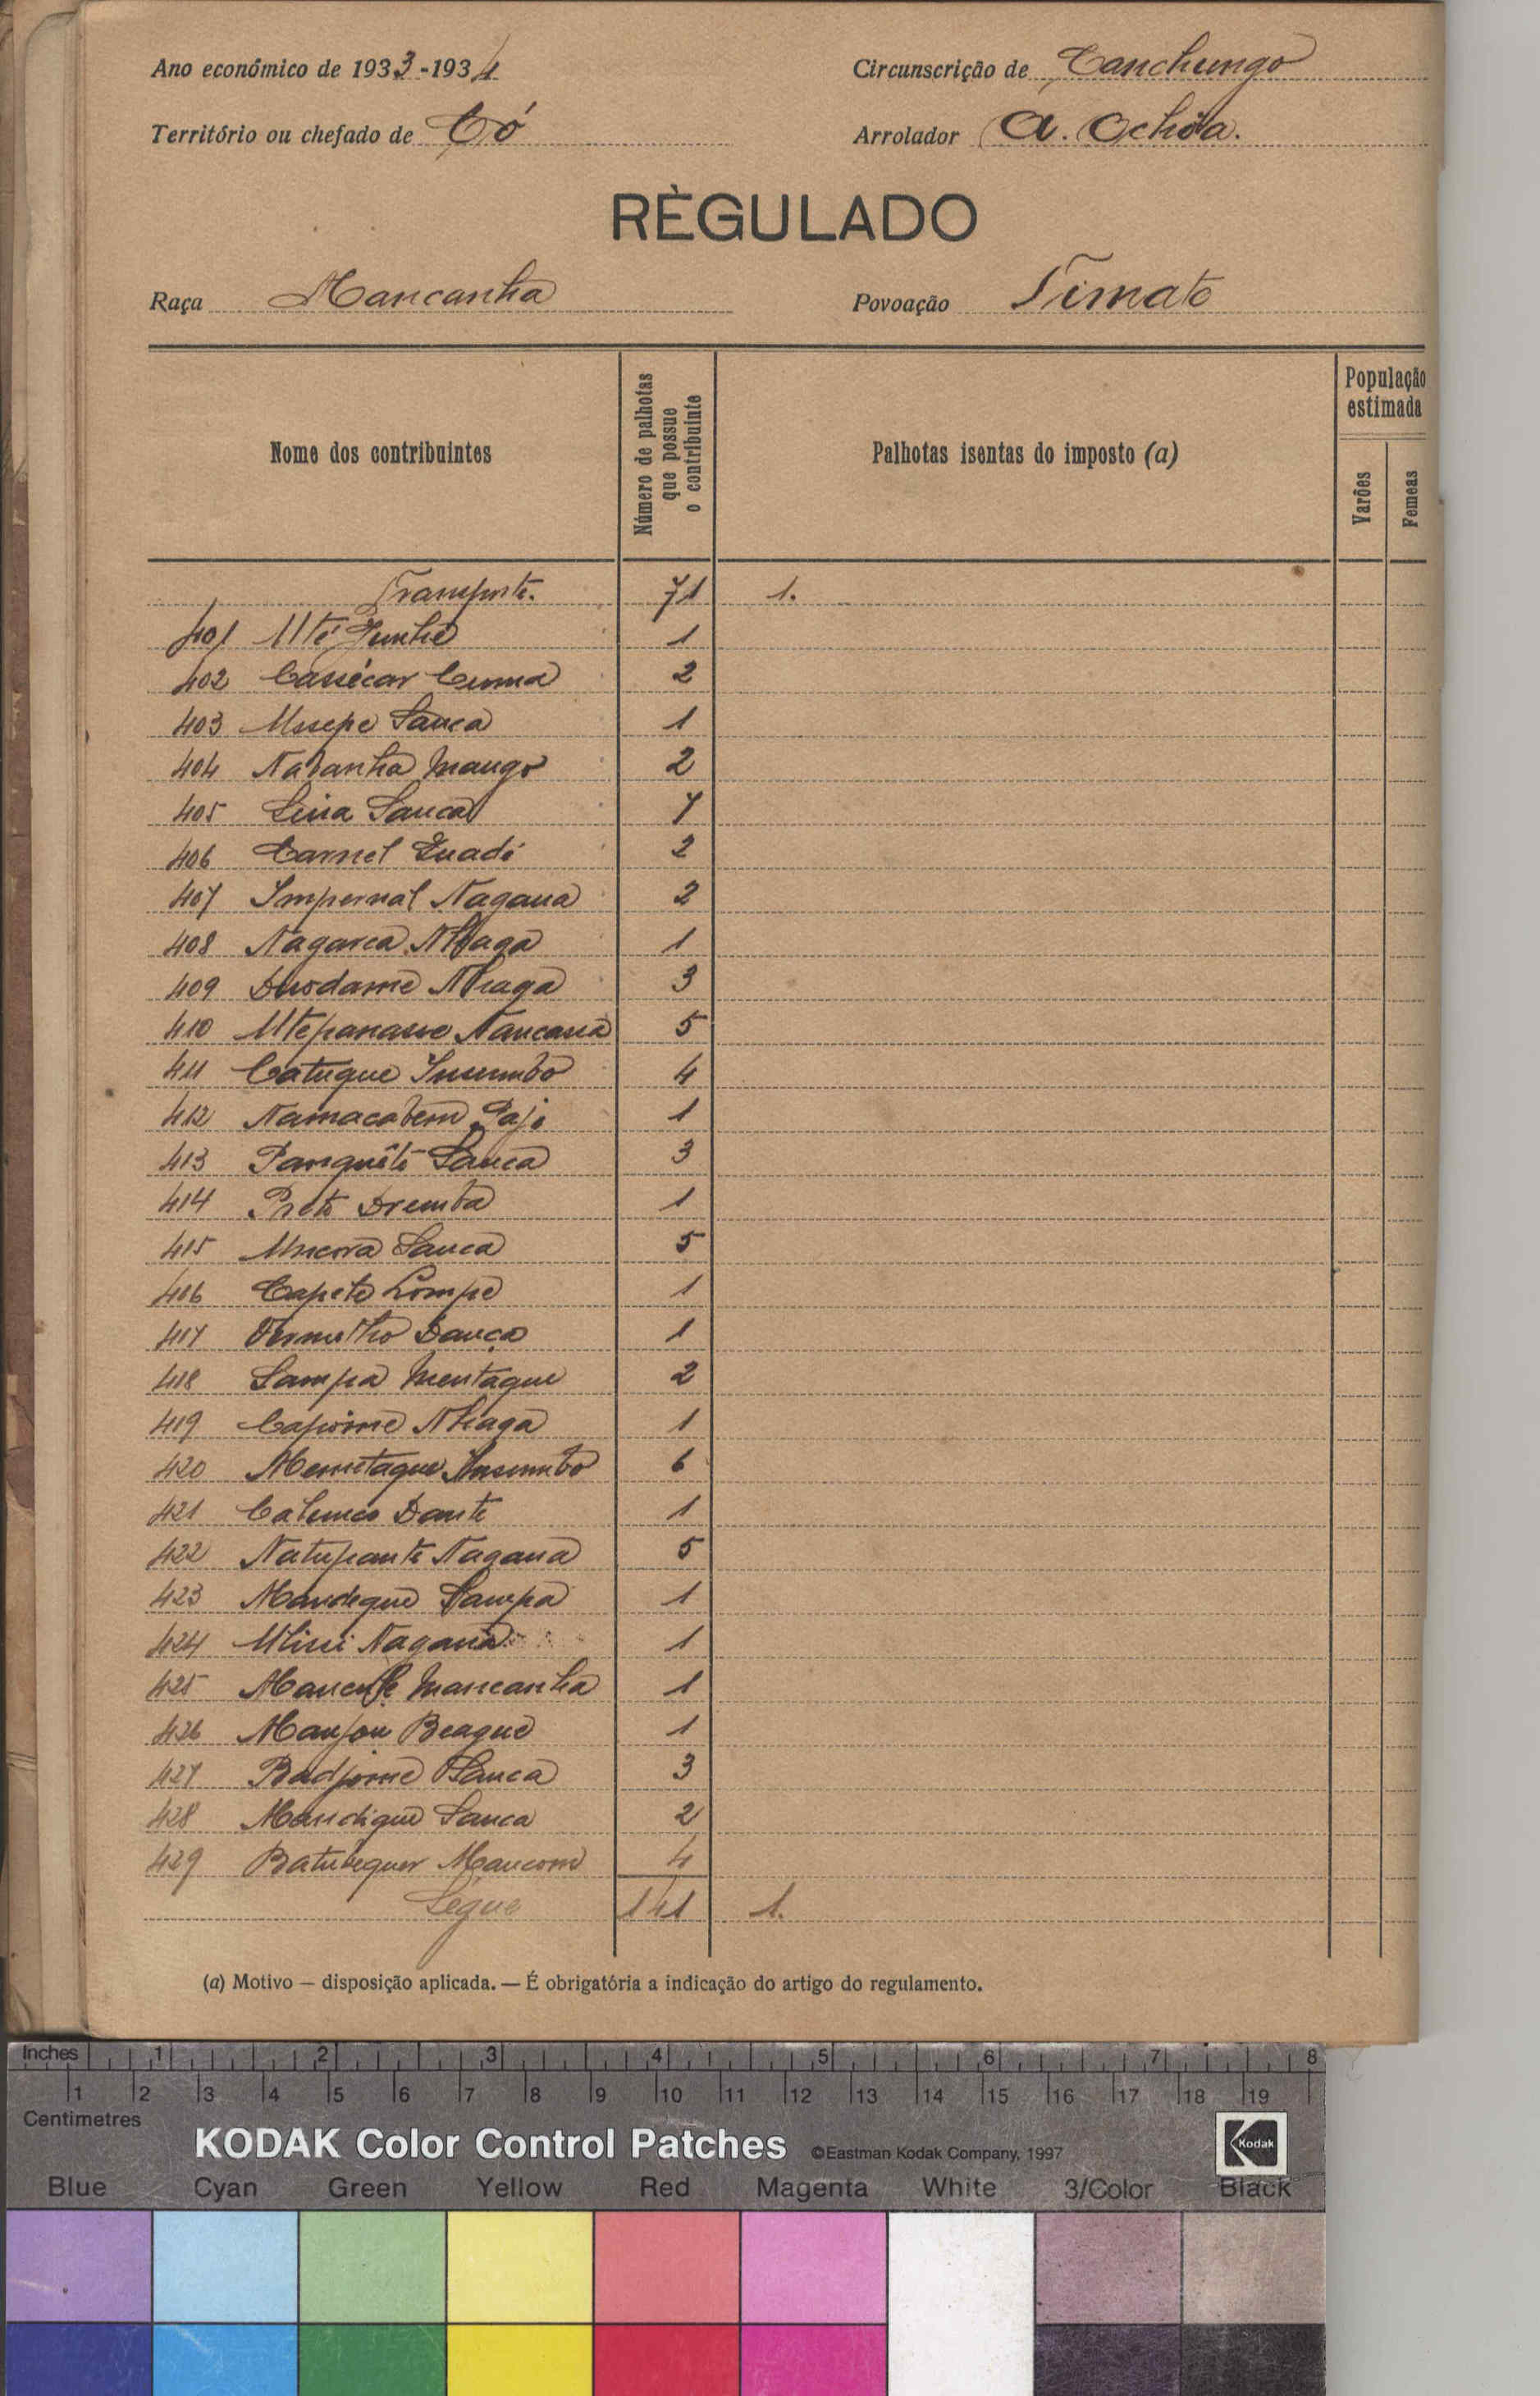 Ano económico de 1933-1934
Circunscrição de Canchungo
Território ou chefado de Có
Arrolador A. Ochôa.
RÈGULADO
Raça Mancanha
Povoação Timato
Nome dos contribuintes
Número de palhotas que possue o contribuinte
Palhotas isentas do imposto (a)
População estimada
Varões
Femeas
Transporte. 71 1.
401 Uté 1
402 Cassécar Cuma 2
403 Ussepe Sanca 1
404 Nabanha Mango 2
405 Lina Sanca 7
406 Carnel 2
407 Impernal Nagana 2
408 Nhaga 1
409 Nhaga 3
410 5
411 Catuque Insumbo 4
412 Namacabem 1
413 Panquêtè Sanca 3
414 Preto Dremba 1
415 Uncora Sanca 5
416 Capete Lompe 1
417 Vermelho Dança 1
418 Sampa Mentague 2
419 Nhaga 1
420 Insumbo 6
421 Dante 1
422 Natupante Nagana 5
423 Mandegue Sampa 1
424 Nagana 1
425 Mancanha 1
426 Beague 1
427 Badjome Sanca 3
428 Mandigue Sanca 2
429 4
Segue 141 1.
(a) Motivo — disposição aplicada. — É obrigatória a indicação do artigo do regulamento.
Inches 1 2 3 4 5 6 7 8
1 2 3 4 5 6 7 8 9 10 11 12 13 14 15 16 17 18 19
Centimetres
KODAK Color Control Patches ©Eastman Kodak Company, 1997 Kodak
Blue Cyan Green Yellow Red Magenta White 3/Color Black